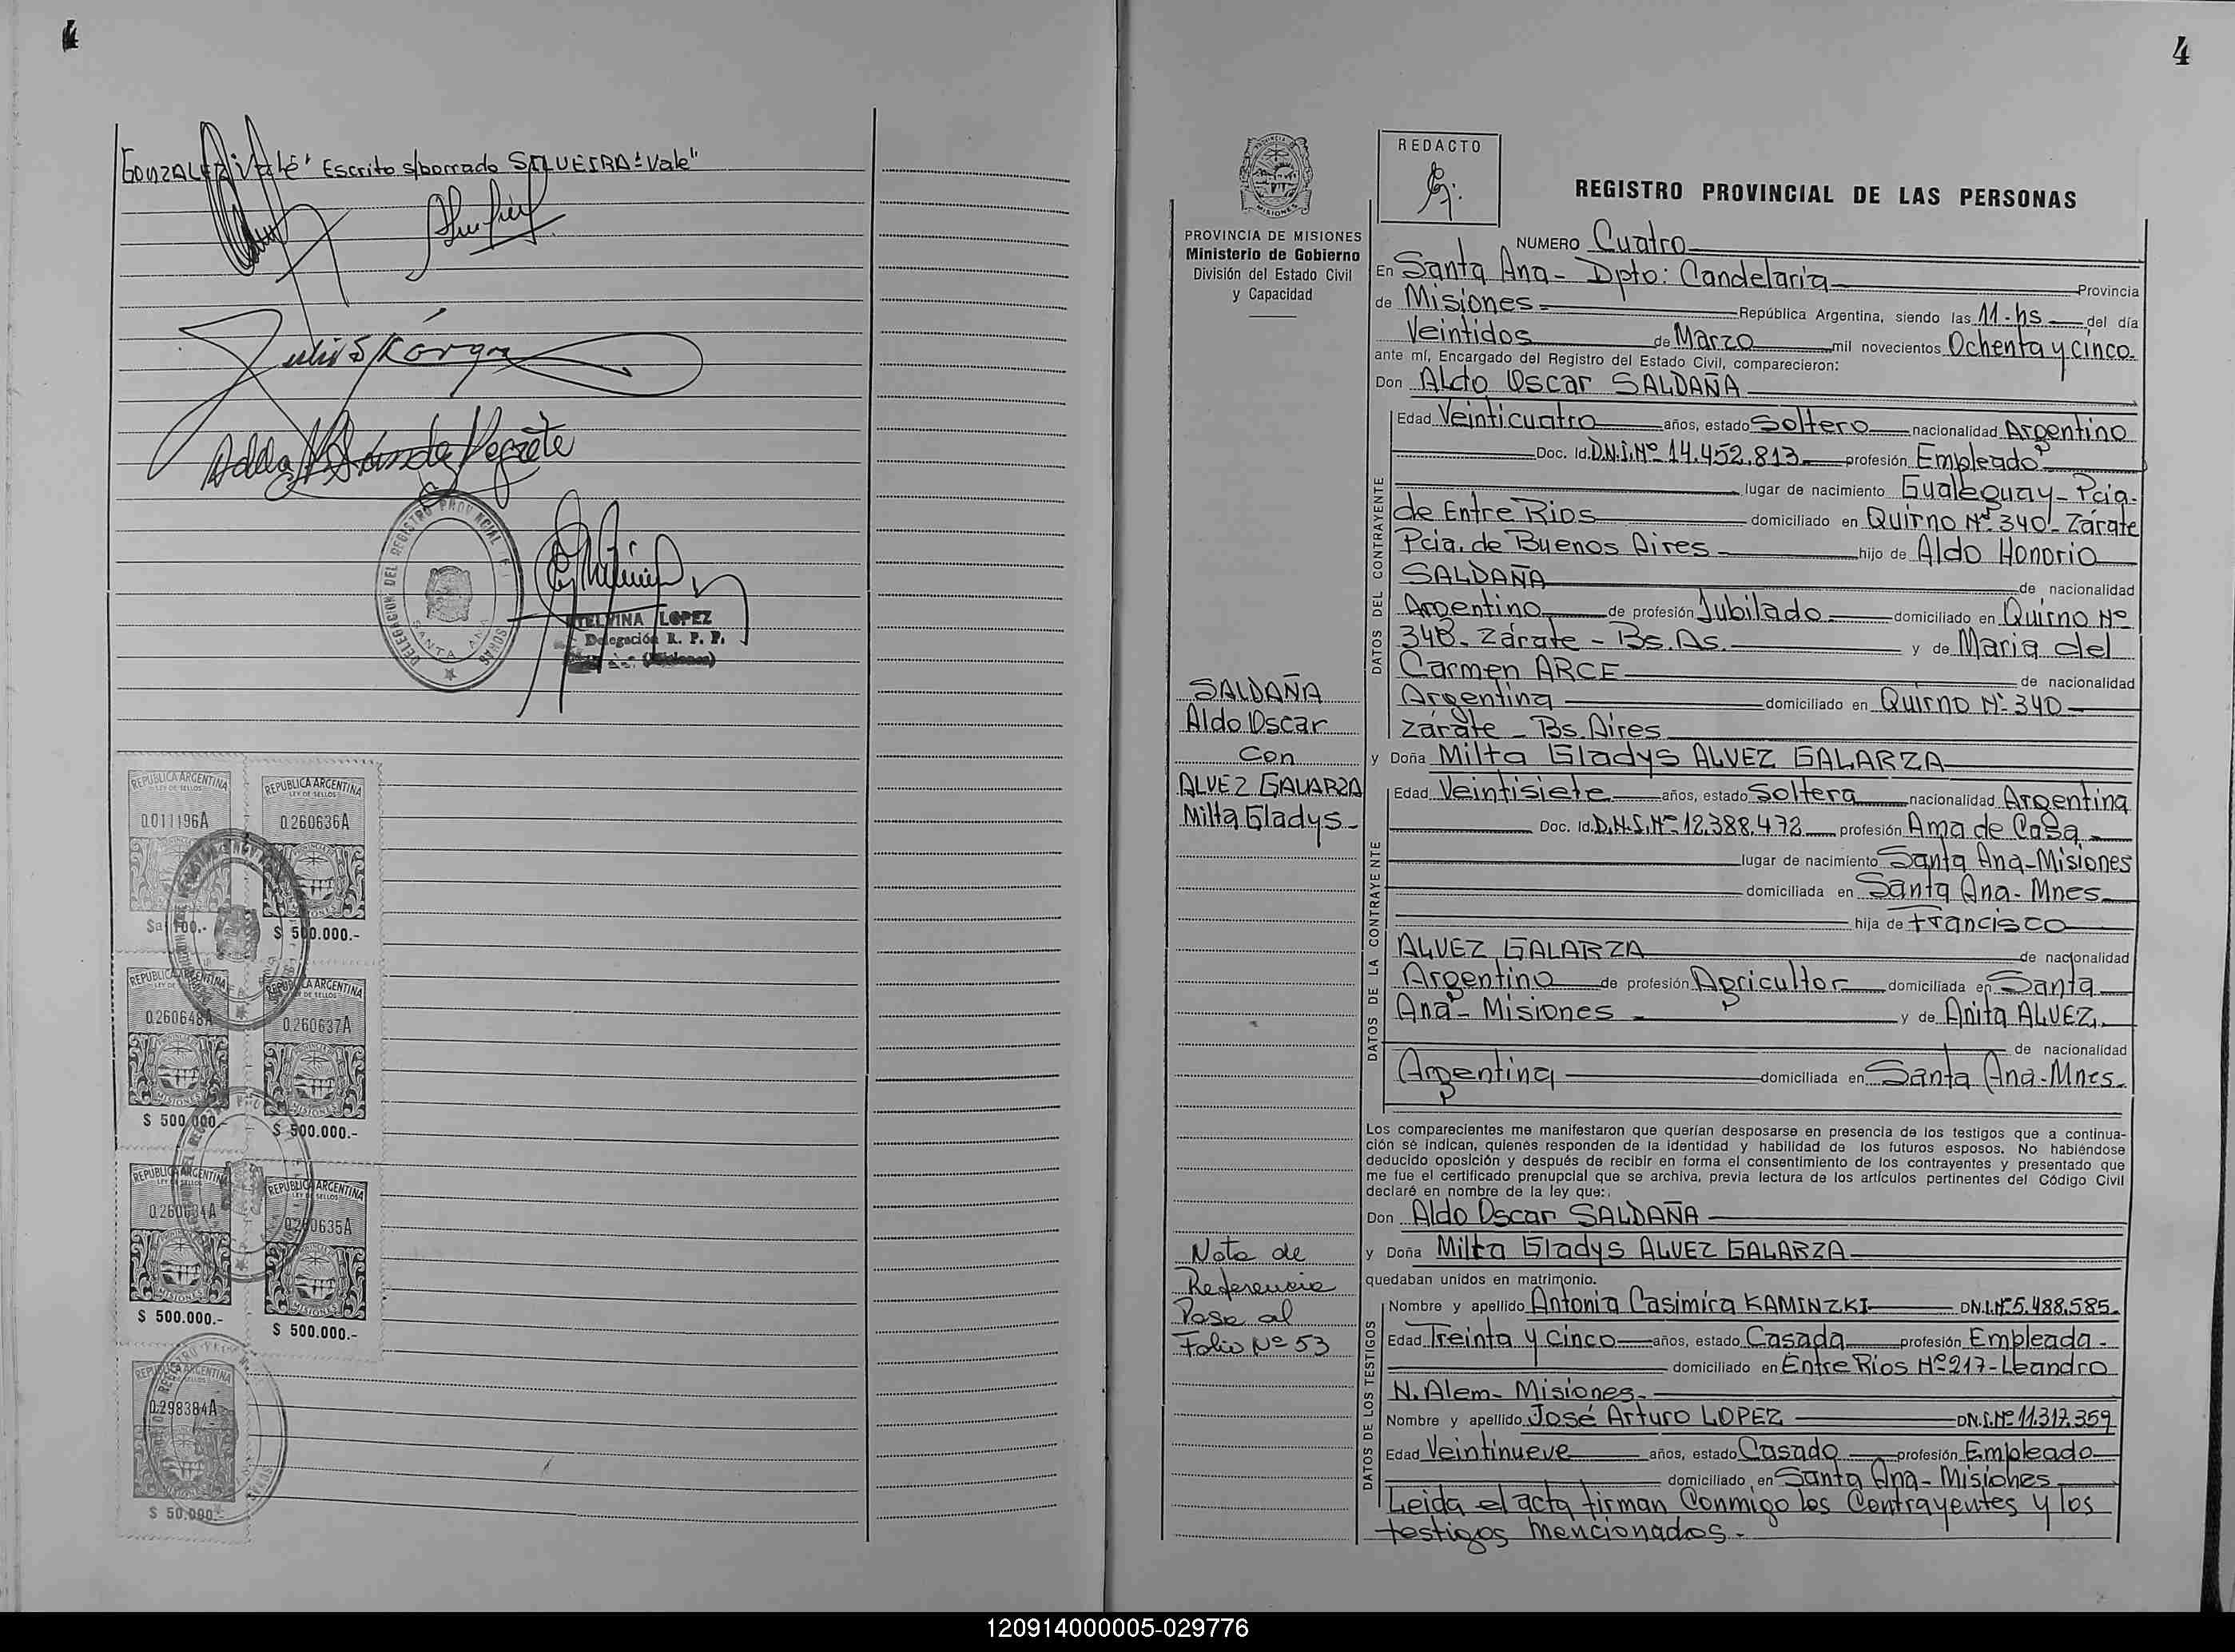 4
Escrito s/borrado SILVEIRA "Vale"
DELEGACION DEL REGISTRO PROVINCIAL DE LAS PERSONAS
SANTA ANA
TELVINA LOPEZ
Delegación R. P. P.
(Misiones)
REPUBLICA ARGENTINA
LEY DE SELLOS
0.011196A
$a 100.-
REPUBLICA ARGENTINA
LEY DE SELLOS
0.260636A
$ 500.000.-
REPUBLICA ARGENTINA
0.260648A
MISIONES
$ 500.000.-
REPUBLICA ARGENTINA
LEY DE SELLOS
0.260637A
MISIONES
$ 500.000.-
REPUBLICA ARGENTINA
0.260634A
MISIONES
$ 500.000.-
REPUBLICA ARGENTINA
LEY DE SELLOS
0.260635A
MISIONES
$ 500.000.-
REPUBLICA ARGENTINA
0.298384A
$ 50.000.-
4
PROVINCIA DE MISIONES
Ministerio de Gobierno
División del Estado Civil
y Capacidad
REDACTO
REGISTRO PROVINCIAL DE LAS PERSONAS
NUMERO Cuatro
En Santa Ana - Dpto: Candelaria Provincia
de Misiones República Argentina, siendo las 11-hs del día
Veintidos de Marzo mil novecientos Ochenta y cinco.
ante mí, Encargado del Registro del Estado Civil, comparecieron:
Don Aldo Oscar SALDAÑA
DATOS DEL CONTRAYENTE
Edad Veinticuatro años, estado Soltero nacionalidad Argentino
Doc. Id. D.N.I.Nº 14.452.813 profesión Empleado
lugar de nacimiento Gualeguay - Pcia.
de Entre Rios domiciliado en Quirno Nº 340 - Zárate
Pcia. de Buenos Aires hijo de Aldo Honorio
SALDAÑA de nacionalidad
Argentino de profesión Jubilado domiciliado en Quirno Nº
348. Zárate - Bs. As. y de Maria del
Carmen ARCE de nacionalidad
Argentina domiciliado en Quirno Nº 340
Zárate - Bs. Aires
SALDAÑA
Aldo Oscar
Con
ALVEZ GALARZA
Milta Gladys
y Doña Milta Gladys ALVEZ GALARZA
DATOS DE LA CONTRAYENTE
Edad Veintisiete años, estado Soltera nacionalidad Argentina
Doc. Id. D.N.I.Nº 12.388.472 profesión Ama de Casa
lugar de nacimiento Santa Ana - Misiones
domiciliada en Santa Ana - Mnes.
hija de Francisco
ALVEZ GALARZA de nacionalidad
Argentino de profesión Agricultor domiciliada en Santa
Ana - Misiones y de Anita ALVEZ,
de nacionalidad
Argentina domiciliada en Santa Ana - Mnes.
Los comparecientes me manifestaron que querían desposarse en presencia de los testigos que a continua-
ción se indican, quienes responden de la identidad y habilidad de los futuros esposos. No habiéndose
deducido oposición y después de recibir en forma el consentimiento de los contrayentes y presentado que
me fue el certificado prenupcial que se archiva, previa lectura de los artículos pertinentes del Código Civil
declaré en nombre de la ley que:
Don Aldo Oscar SALDAÑA
y Doña Milta Gladys ALVEZ GALARZA
quedaban unidos en matrimonio.
Nota de
Referencia
Pase al
Folio Nº 53
DATOS DE LOS TESTIGOS
Nombre y apellido Antonia Casimira KAMINZKI DN.I.Nº 5.488.585
Edad Treinta y cinco años, estado Casada profesión Empleada
domiciliado en Entre Rios Nº 217 - Leandro
N. Alem - Misiones.
Nombre y apellido José Arturo LOPEZ DN.I.Nº 11.317.359
Edad Veintinueve años, estado Casado profesión Empleado
domiciliado en Santa Ana - Misiones
Leida el acta firman Conmigo los Contrayentes y los
testigos mencionados.-
120914000005-029776